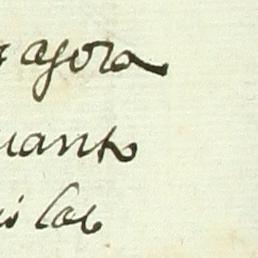 agora
uanto
i las